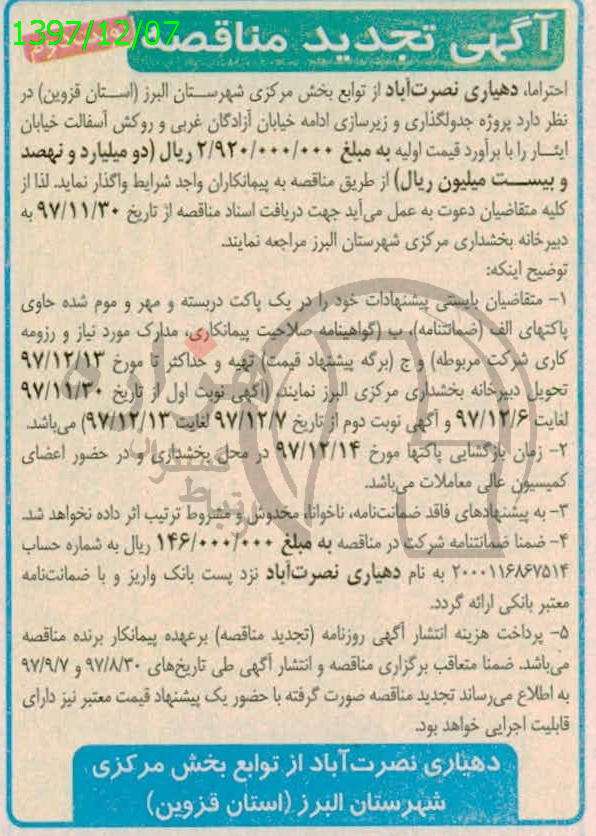 1397/12/07
آگهی تجدید مناقصه
احتراما، دهیاری نصرت‌آباد از توابع بخش مرکزی شهرستان البرز (استان قزوین) در
نظر دارد پروژه جدولگذاری و زیرسازی ادامه خیابان آزادگان غربی و روکش آسفالت خیابان
ایثار را با برآورد قیمت اولیه به مبلغ ۲/۹۲۰/۰۰۰/۰۰۰ ریال (دو میلیارد و نهصد
و بیست میلیون ریال) از طریق مناقصه به پیمانکاران واجد شرایط واگذار نماید. لذا از
کلیه متقاضیان دعوت به عمل می‌آید جهت دریافت اسناد مناقصه از تاریخ ۹۷/۱۱/۳۰ به
دبیرخانه بخشداری مرکزی شهرستان البرز مراجعه نمایند.
توضیح اینکه:
۱- متقاضیان بایستی پیشنهادات خود را در یک پاکت دربسته و مهر و موم شده حاوی
پاکتهای الف (ضمانتنامه)، ب (گواهینامه صلاحیت پیمانکاری، مدارک مورد نیاز و رزومه
کاری شرکت مربوطه) و ج (برگه پیشنهاد قیمت) تهیه و حداکثر تا مورخ ۹۷/۱۲/۱۳
تحویل دبیرخانه بخشداری مرکزی البرز نمایند. (آگهی نوبت اول از تاریخ ۹۷/۱۱/۳۰
لغایت ۹۷/۱۲/۶ و آگهی نوبت دوم از تاریخ ۹۷/۱۲/۷ لغایت ۹۷/۱۲/۱۳) می‌باشد.
۲- زمان بازگشایی پاکتها مورخ ۹۷/۱۲/۱۴ در محل بخشداری و در حضور اعضای
کمیسیون عالی معاملات می‌باشد.
۳- به پیشنهادهای فاقد ضمانت‌نامه، ناخوانا، مخدوش و مشروط ترتیب اثر داده نخواهد شد.
۴- ضمنا ضمانتنامه شرکت در مناقصه به مبلغ ۱۴۶/۰۰۰/۰۰۰ ریال به شماره حساب
۲۰۰۰۱۱۶۸۶۷۵۱۴ به نام دهیاری نصرت‌آباد نزد پست بانک واریز و با ضمانت‌نامه
معتبر بانکی ارائه گردد.
۵- پرداخت هزینه انتشار آگهی روزنامه (تجدید مناقصه) برعهده پیمانکار برنده مناقصه
می‌باشد. ضمنا متعاقب برگزاری مناقصه و انتشار آگهی طی تاریخ‌های ۹۷/۸/۳۰ و ۹۷/۹/۷
به اطلاع می‌رساند تجدید مناقصه صورت گرفته با حضور یک پیشنهاد قیمت معتبر نیز دارای
قابلیت اجرایی خواهد بود.
دهیاری نصرت‌آباد از توابع بخش مرکزی
شهرستان البرز (استان قزوین)